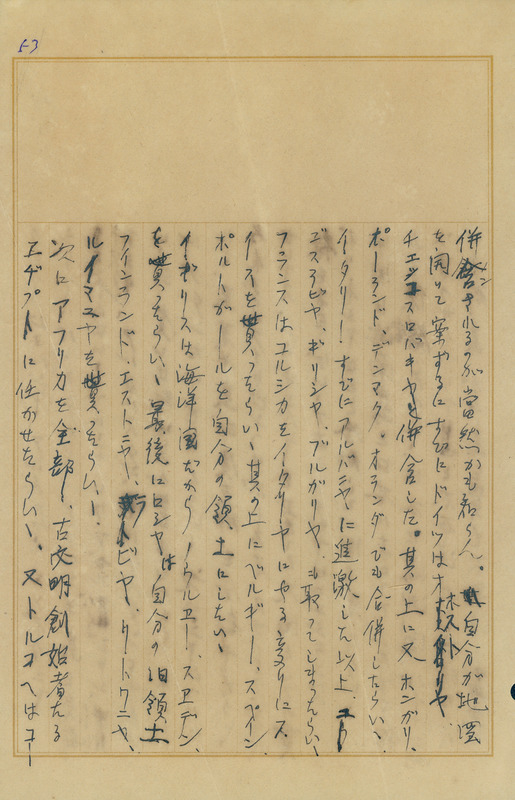 53
併合されるのが当然かも知らん。自分が地図
を開いて案ずるにすでにドイツはオースト
チエッコスロバキヤを併合した。其の上に又ホンガリ、
ポーランド、デンマク。オランダでも合併したらいゝ、
イタリー!すでにアルバニヤに進激した以上、ユウ
ゴスラビヤ、ギリシヤ、ブルガリヤも取ってしまったらいゝ、
フランスはコルシカをイタリーにやる変りにス
イスを貰ったらいゝ其の上にベルギー、スペイン、
ポルトガールを自分の領土にしたい、
イギリスは海洋国だからノールエー、スエデン、
を貰ったらいゝ最後にロシヤは自分の旧領土
フインランド、エストニヤ、ラトビヤ、リートワニヤ、
ルイマニヤを貰ったらいゝ!
次にアフリカを全部、古文明創始者たる
エヂプトに任かせたらいゝ、又トルコへはユー